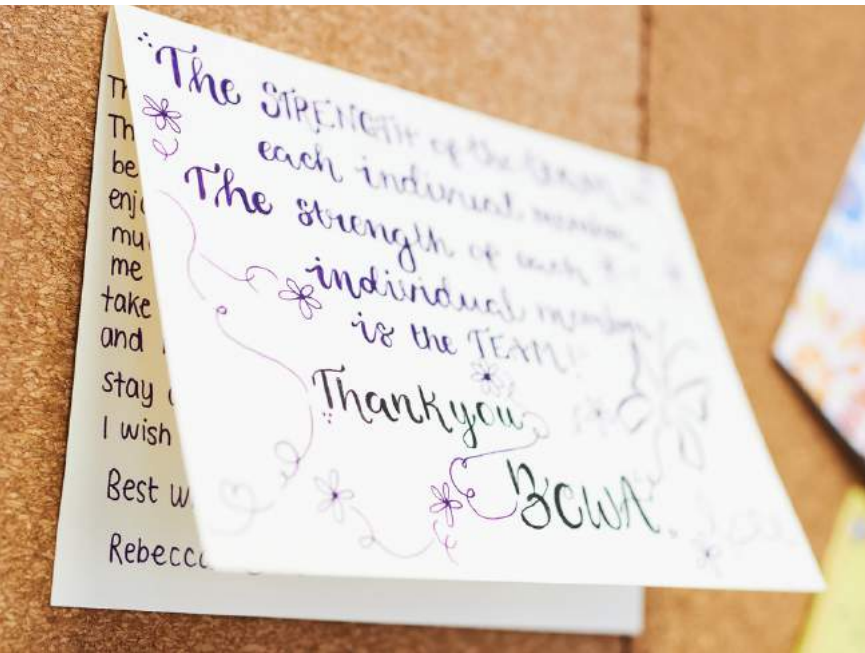 The STRENGTH of the team is
each individual member.
The strength of each
individual member
is the TEAM!
Thankyou
BCWA
Th
Th
be
enj
mu
me
take
and
stay
I wish
Best w
Rebecca